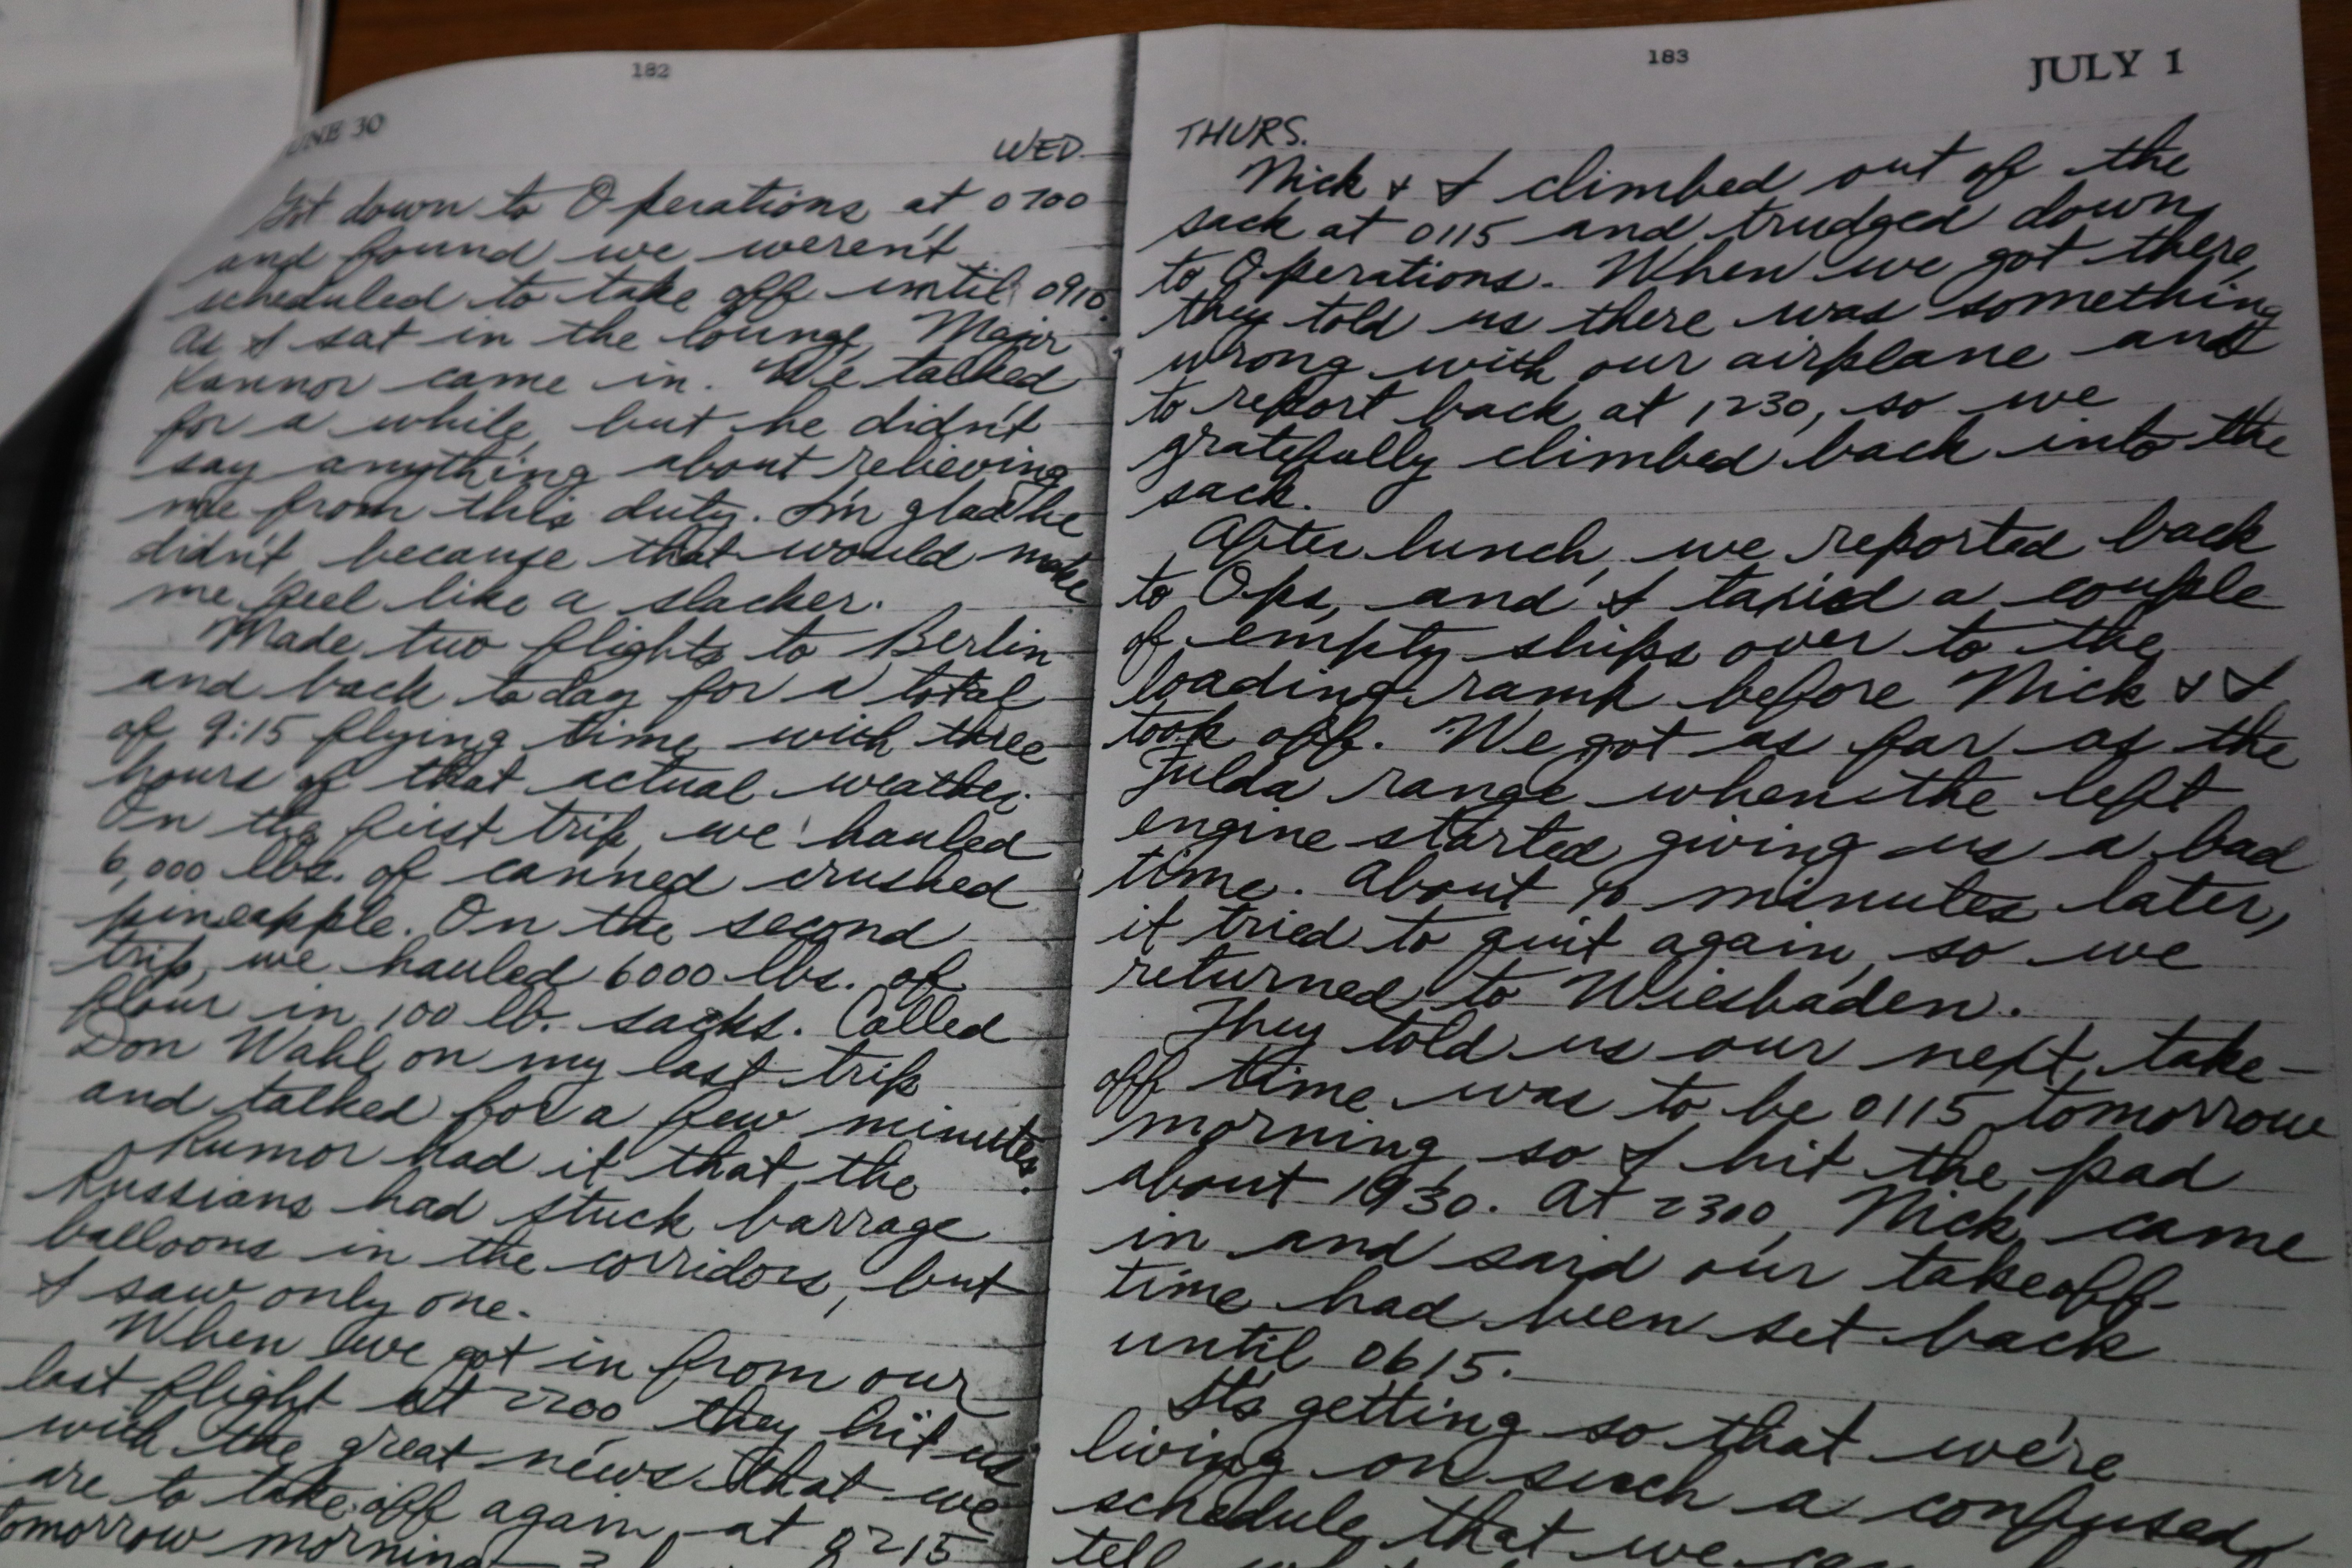 182
UNE 30
WED.
Got down to Operations at 0700
and found we weren't
scheduled to take off until 0910.
As I sat in the lounge, Major
Kannor came in. We talked
for a while, but he didn't
say anything about relieving
me from this duty. I'm glad he
didn't, because that would make
me feel like a slacker.
Made two flights to Berlin
and back today for a total
of 9:15 flying time, with three
hours of that actual weather.
On the first trip, we hauled
6,000 lbs. of canned crushed
pineapple. On the second
trip, we hauled 6000 lbs. of
flour in 100 lb. sacks. Called
Don Wahl on my last trip
and talked for a few minutes.
Rumor had it that the
Russians had stuck barrage
balloons in the corridors, but
I saw only one.
When we got in from our
last flight at 2200 they hit us
with the great news that we
are to take off again at 0215
tomorrow morning
183
JULY 1
THURS.
Nick & I climbed out of the
sack at 0115 and trudged down
to Operations. When we got there,
they told us there was something
wrong with our airplane and
to report back at 1230, so we
gratefully climbed back into the
sack.
After lunch, we reported back
to Ops, and I taxied a couple
of empty ships over to the
loading ramp before Nick & I
took off. We got as far as the
Fulda range when the left
engine started giving us a bad
time. About 10 minutes later,
it tried to quit again, so we
returned to Wiesbaden.
They told us our next take-
off time was to be 0115 tomorrow
morning, so I hit the pad
about 1930. At 2300, Nick came
in and said our takeoff
time had been set back
until 0615.
It's getting so that we're
living on such a confused
schedule, that we can
tell